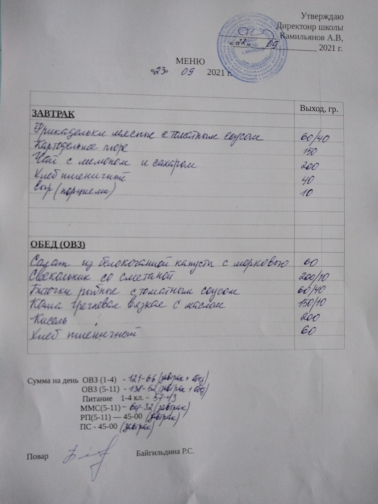 Утверждаю
Директор школы
Камильянов А.В,
2021 г.
МЕНЮ
«23» 09 2021 г.
Выход, гр.
ЗАВТРАК
Фрикадельки мясные с томатным соусом 60/40
Картофельное пюре 150
Чай с лимоном и сахаром 200
Хлеб пшеничный 40
Сыр (порциями) 10
ОБЕД (ОВЗ)
Салат из белокочанной капусты с морковью 60
Свекольник со сметаной 200/10
Биточки рыбные с томатным соусом 60/40
Каша гречневая вязкая с маслом 150/10
Кисель 200
Хлеб пшеничный 60
Сумма на день ОВЗ (1-4) - (завтрак + обед)
ОВЗ (5-11) - (завтрак + обед)
Питание 1-4 кл. - 57-43
ММС(5-11) - (завтрак)
РП(5-11) — 45-00 (завтрак)
ПС - 45-00 (завтрак)
Повар Байгильдина Р.С.